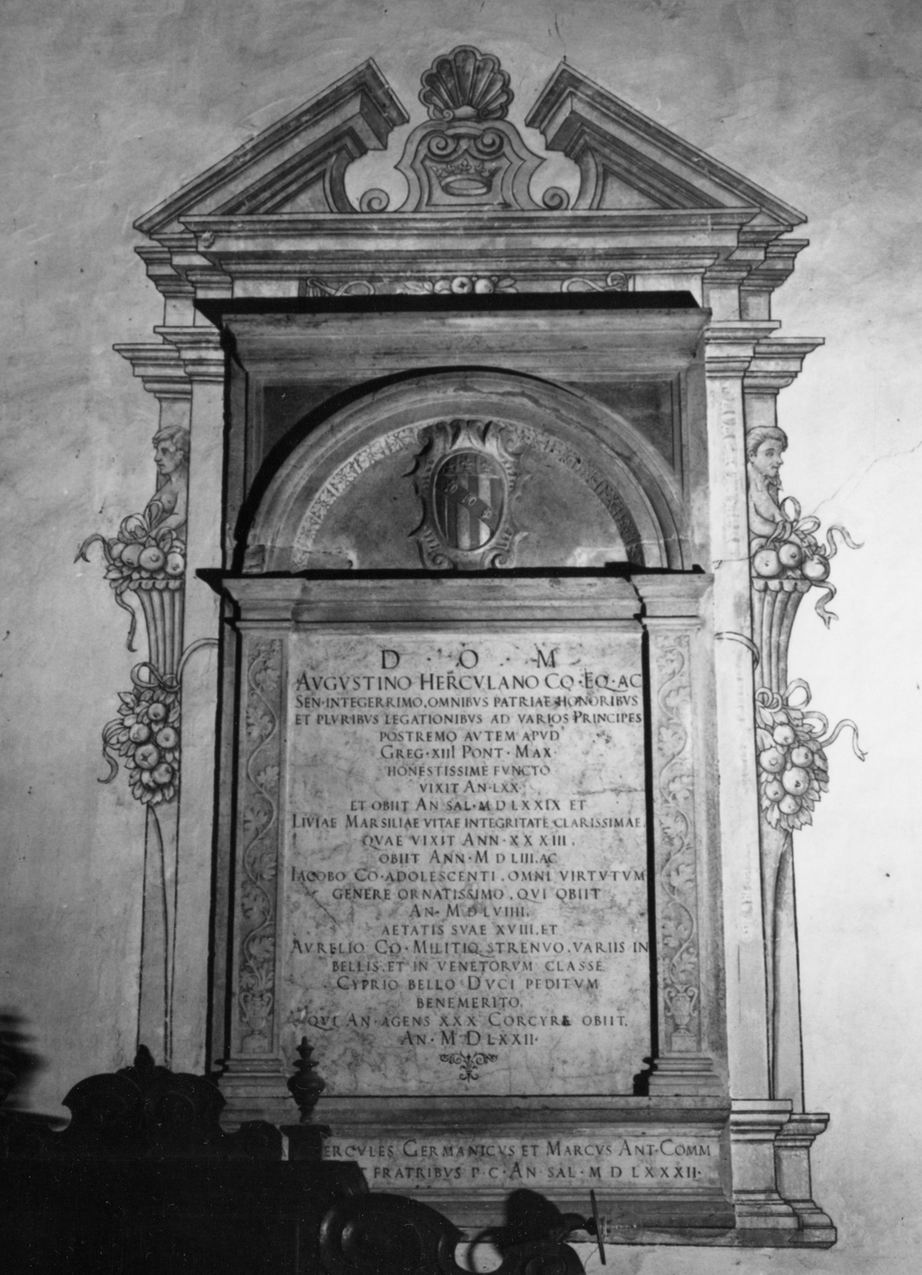 D · O · M
AVGVSTINO HERCVLANO CO · EQ · AC
SEN · INTEGERRIMO, OMNIBVS PATRIAE HONORIBVS
ET PLVRIBVS LEGATIONIBVS AD VARIOS PRINCIPES
POSTREMO AVTEM APVD
GREG · XIII PONT · MAX ·
HONESTISSIME FVNCTO
VIXIT AN · LXX
ET OBIIT AN SAL · M D LXXIX ET
LIVIAE MARSILIAE VITAE INTEGRITATE CLARISSIMAE,
QVAE VIXIT ANN · XXXIII,
OBIIT ANN · M D LIII, AC
IACOBO CO · ADOLESCENTI, OMNI VIRTVTVM
GENERE ORNATISSIMO, QVI OBIIT
AN · M D LVIIII,
AETATIS SVAE XVIII, ET
AVRELIO CO · MILITIQ STRENVO, VARIIS IN
BELLIS, ET IN VENETORVM CLASSE
CYPRIO BELLO DVCI PEDITVM
BENEMERITO,
QVI AN · AGENS XXX CORCYRÆ OBIIT,
AN · M D LXXII ·
HERCVLES GERMANICVS ET MARCVS ANT · COMM
FRATRIBVS P · C · AN · SAL · M D LXXXII ·